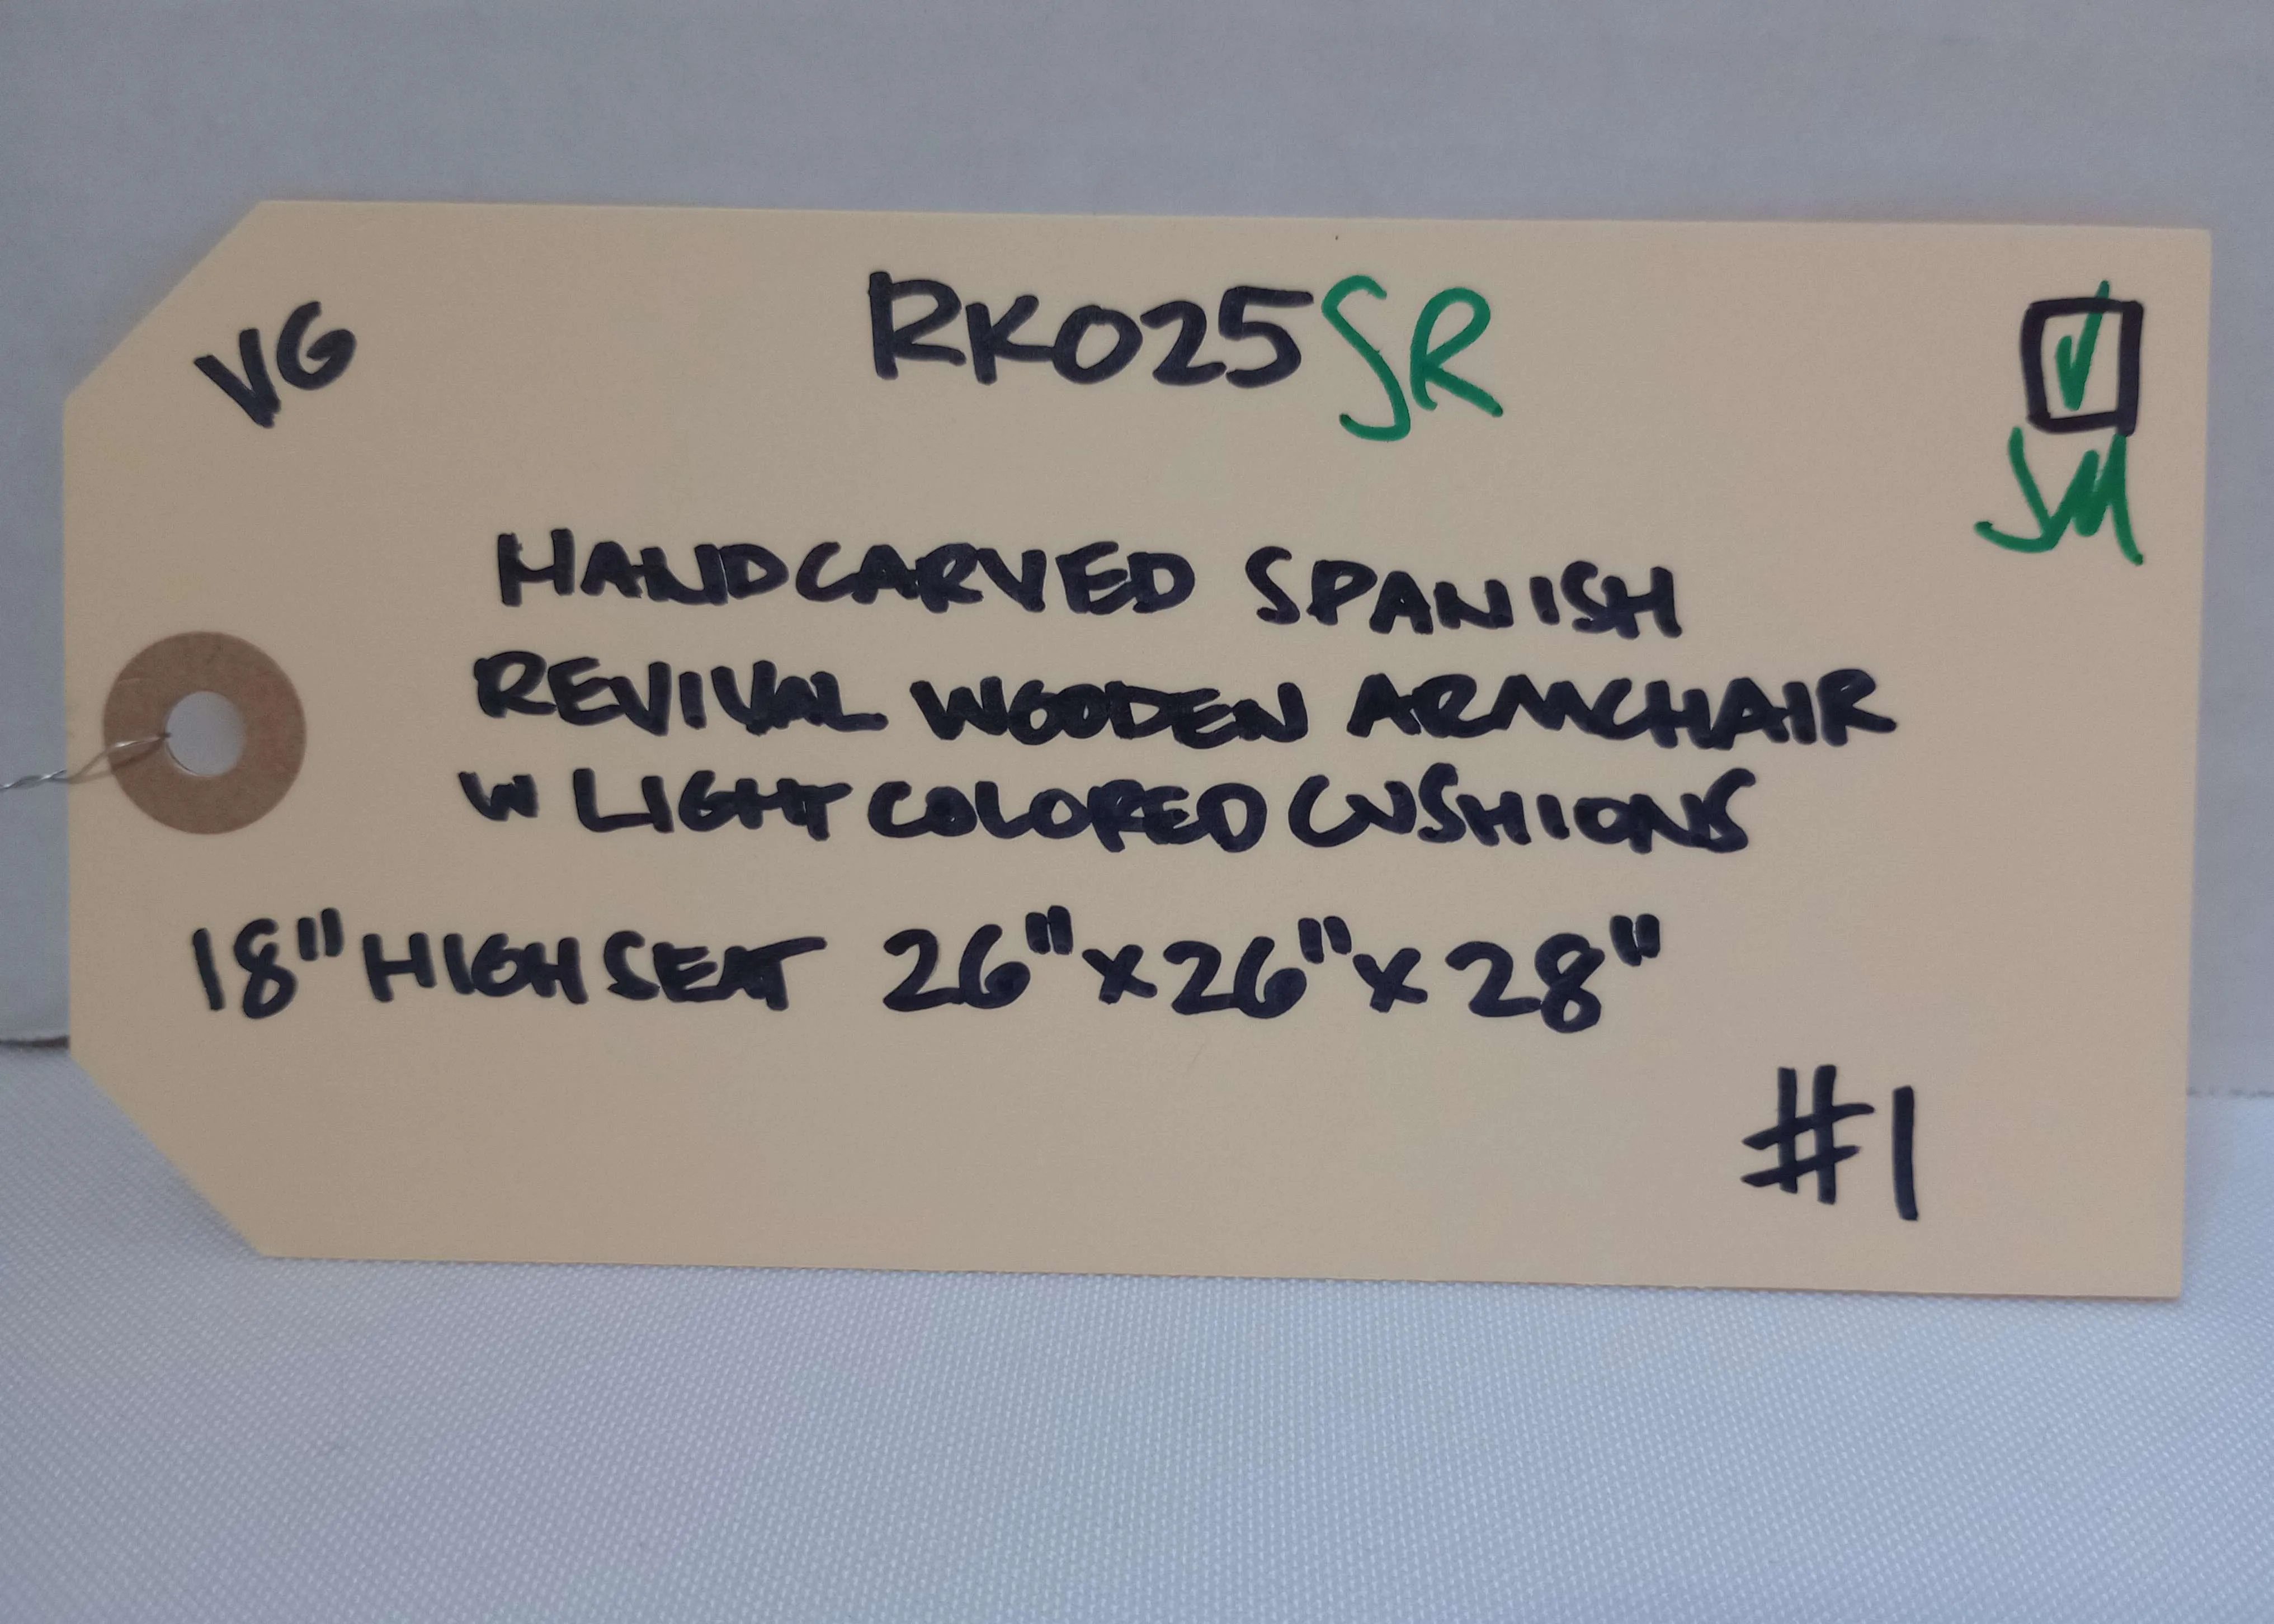 VG
RK025SR
✓
JM
HANDCARVED SPANISH
REVIVAL WOODEN ARMCHAIR
W LIGHT COLORED CUSHIONS
18" HIGH SEAT 26"x26"x28"
#1